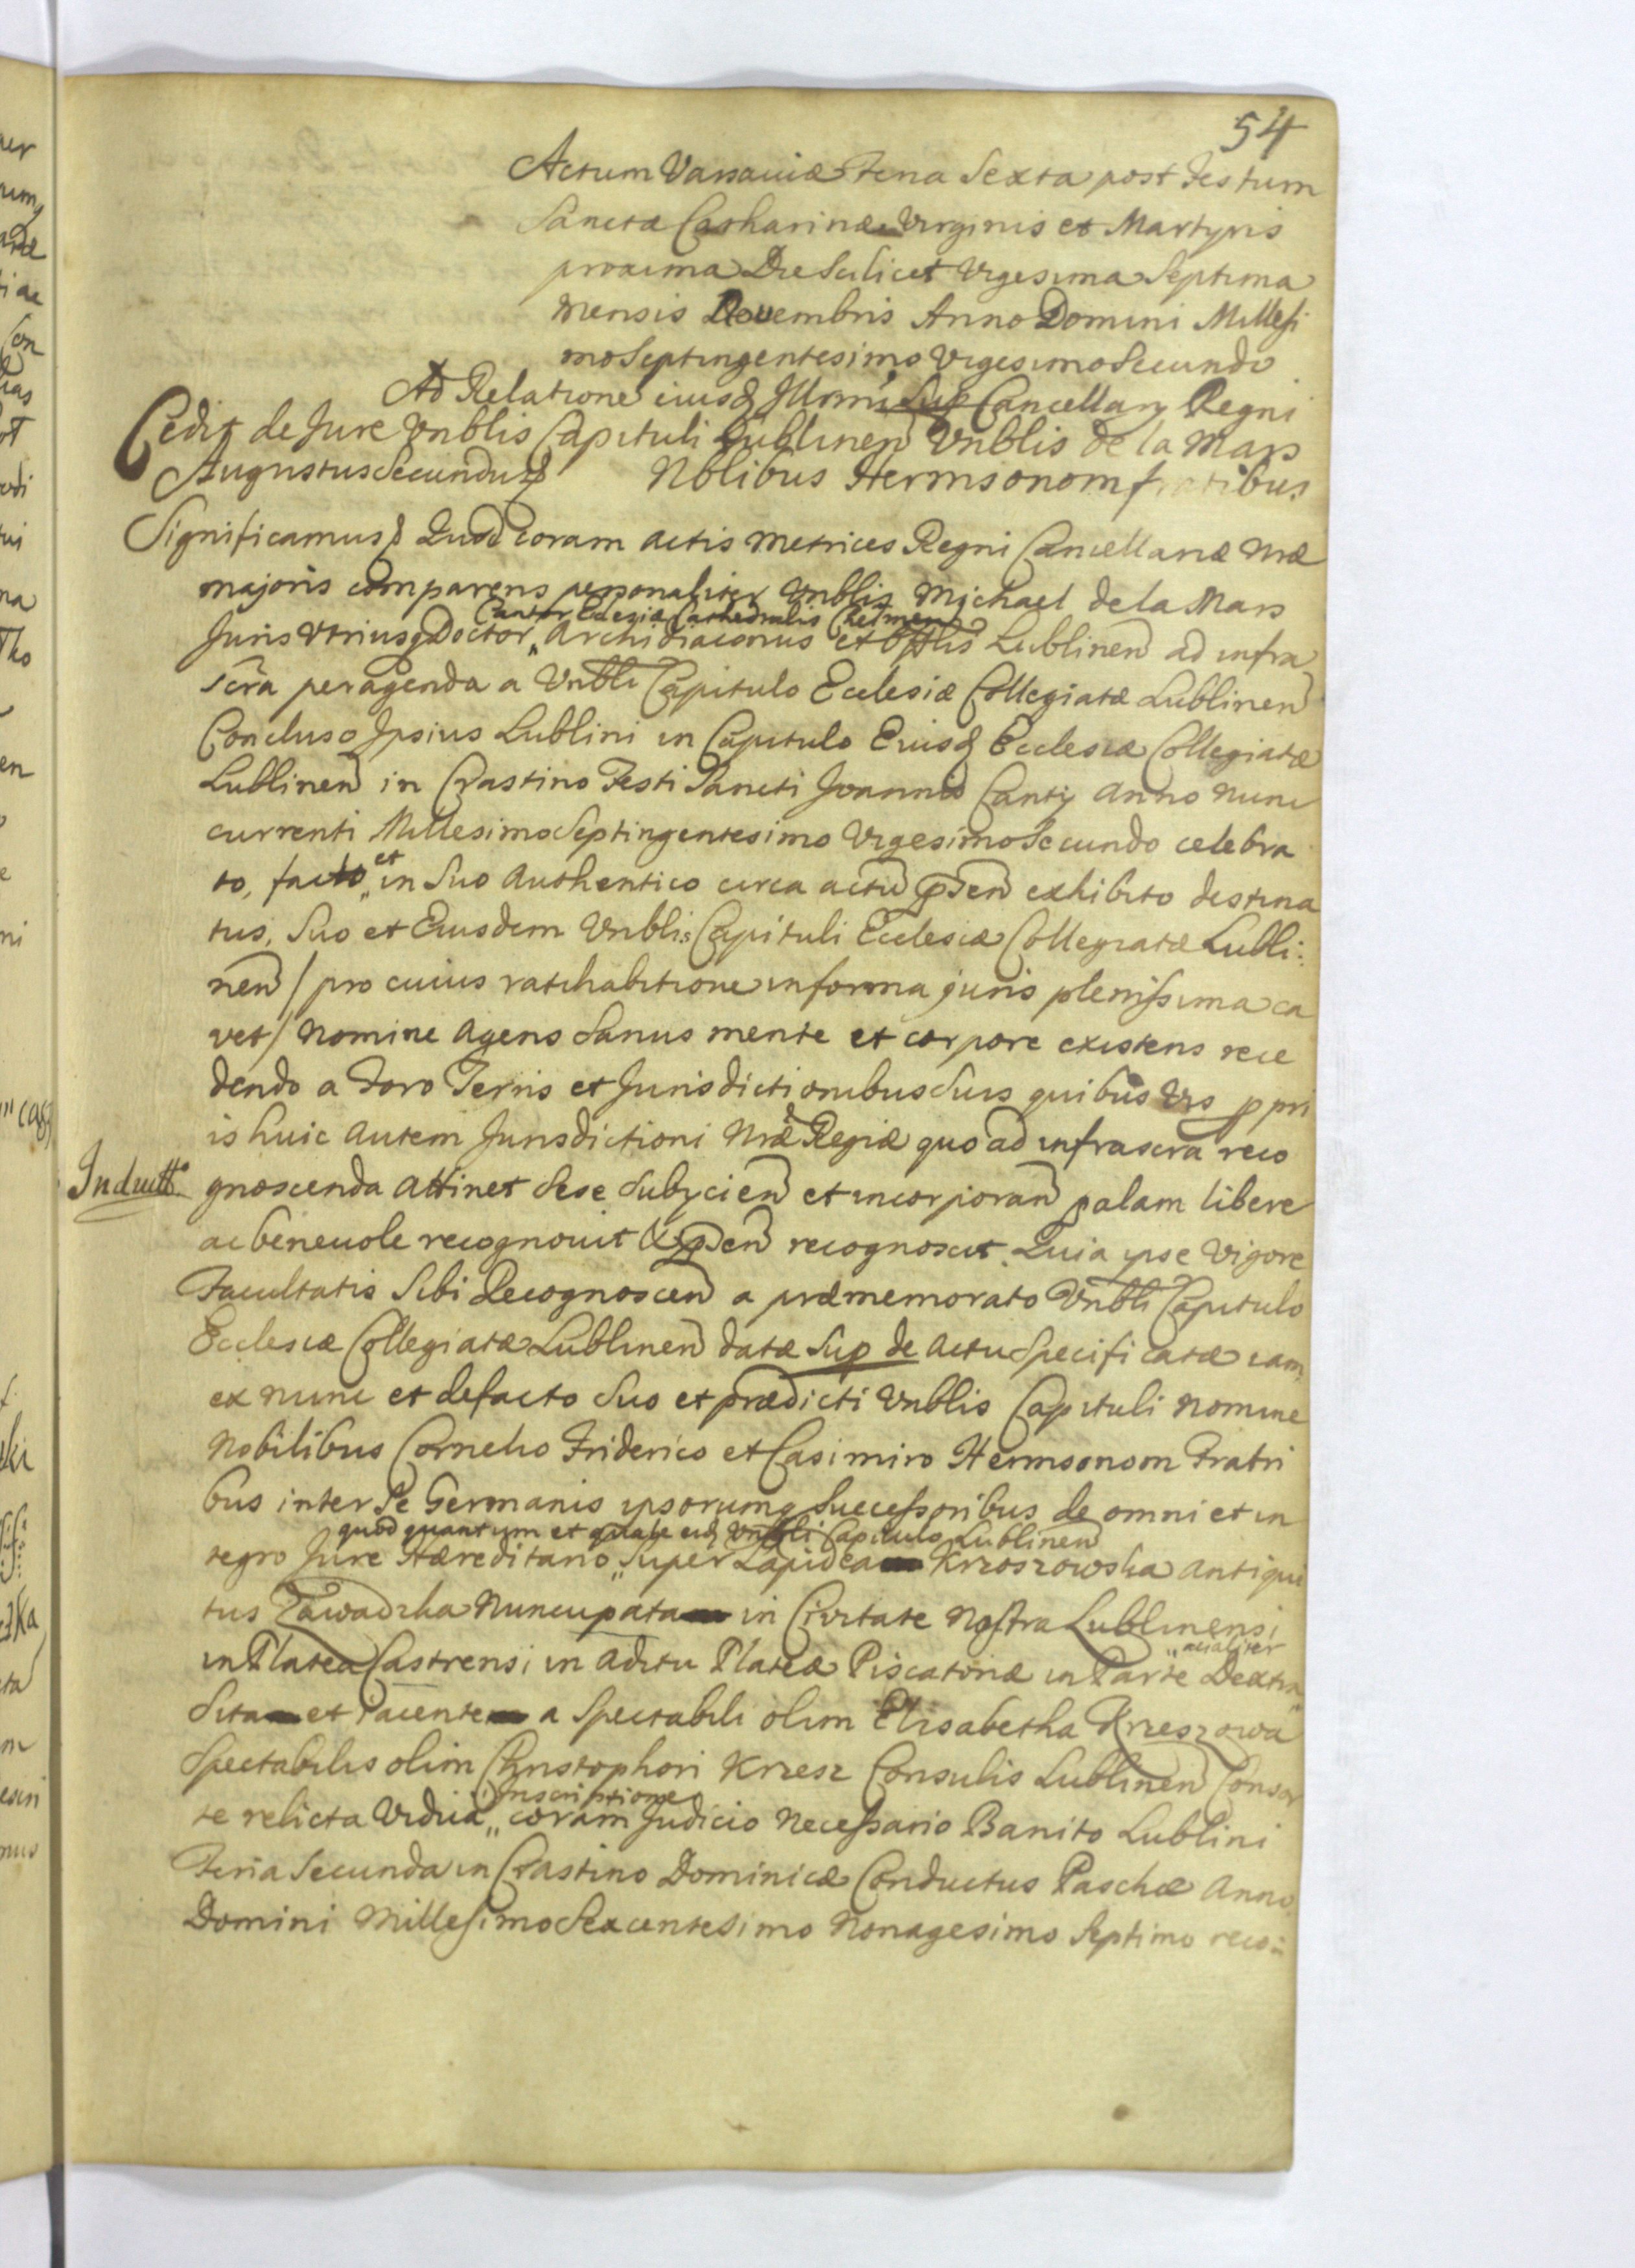 54
Actum Varsaviæ Feria Sexta post Festum
Sanctæ Catharinæ Virginis et Martyris
proxima Die Scilicet Vigesima Septima
Mensis Novembris Anno Domini Millesi
mo Septingentesimo Vigesimo Secundo
Ad Relatione eiusq Illrmi Sup Cancellarÿ Regni
Cedit de Jure Vnblis Capituli Lublinen Vnblis de la Mars
Augustus Secundus Nblibus Hermsonom fratribus
Significamus Quod coram actis Metrices Regni Cancellariæ Nræ
majoris comparens personaliter Vnblis Michael de la Mars
Cantor Eclesiæ Cathedralis Chelmen
Juris Vtriusq Doctor,, Archidiaconus et Offlis Lublinen ad infra
scra peragenda a Vnbli Capitulo Ecclesiæ Collegiatæ Lublinen
Concluso Ipsius Lublini in Capitulo Eiusd Ecclesiæ Collegiatæ
Lublinen in Crastino Festi Sancti Joannis Cantÿ Anno Nunc
currenti Millesimo Septingentesimo Vigesimo Secundo celebra
to, facto,, et in Suo Authentico circa actu pden exhibito destina
tus, Suo et Eiusdem Vnblis Capituli Ecclesiæ Collegiatæ Lubli:
nen / pro cuius ratihabitione in forma juris plenissima ca
vet / Nomine Agens Sanus mente et corpore existens rece
dendo a Foro Terris et Jurisdictionibus Suis quibus Vis ppri
is huic autem Jurisdictioni Nræ Regiæ quo ad infrascra reco
Inductt.
gnoscenda attinet Sese Subÿcien et incorporan palam libere
ac benevole recognovit & pden recognoscit. Quia ipse Vigore
Facultatis Sibi Recognoscen a præmemorato Vnbli Capitulo
Ecclesiæ Collegiatæ Lublinen datæ Sup de Actu Specificatæ iam
ex nunc et de facto Suo et prædicti Vnblis Capituli Nomine
Nobilibus Cornelio Friderico et Casimiro Hermsonom Fratri
bus inter Se Germanis ipsorumq Successoribus de omni et in
quod quantum et quale eid Vnbli Capitulo Lublinen
tegro Jure Hæreditario,, Super Lapidea Krzoszowska antiqui
tus Zawadzka Nuncupata in Civitate Nostra Lublinensi
in Platea Castrensi in aditu Plateæ Piscatoriæ in Parte Dextra
Sita et Iacente a Spectabili olim Elisabetha Krzeszowa
Spectabilis olim Christophori Krzesz Consulis Lublinen Consor
Inscriptione
te relicta Vidua,, coram Judicio Necessario Banito Lublini
Feria Secunda in Crastino Dominicæ Conductus Paschæ Anno
Domini Millesimo Sexcentesimo Nonagesimo Septimo reco: